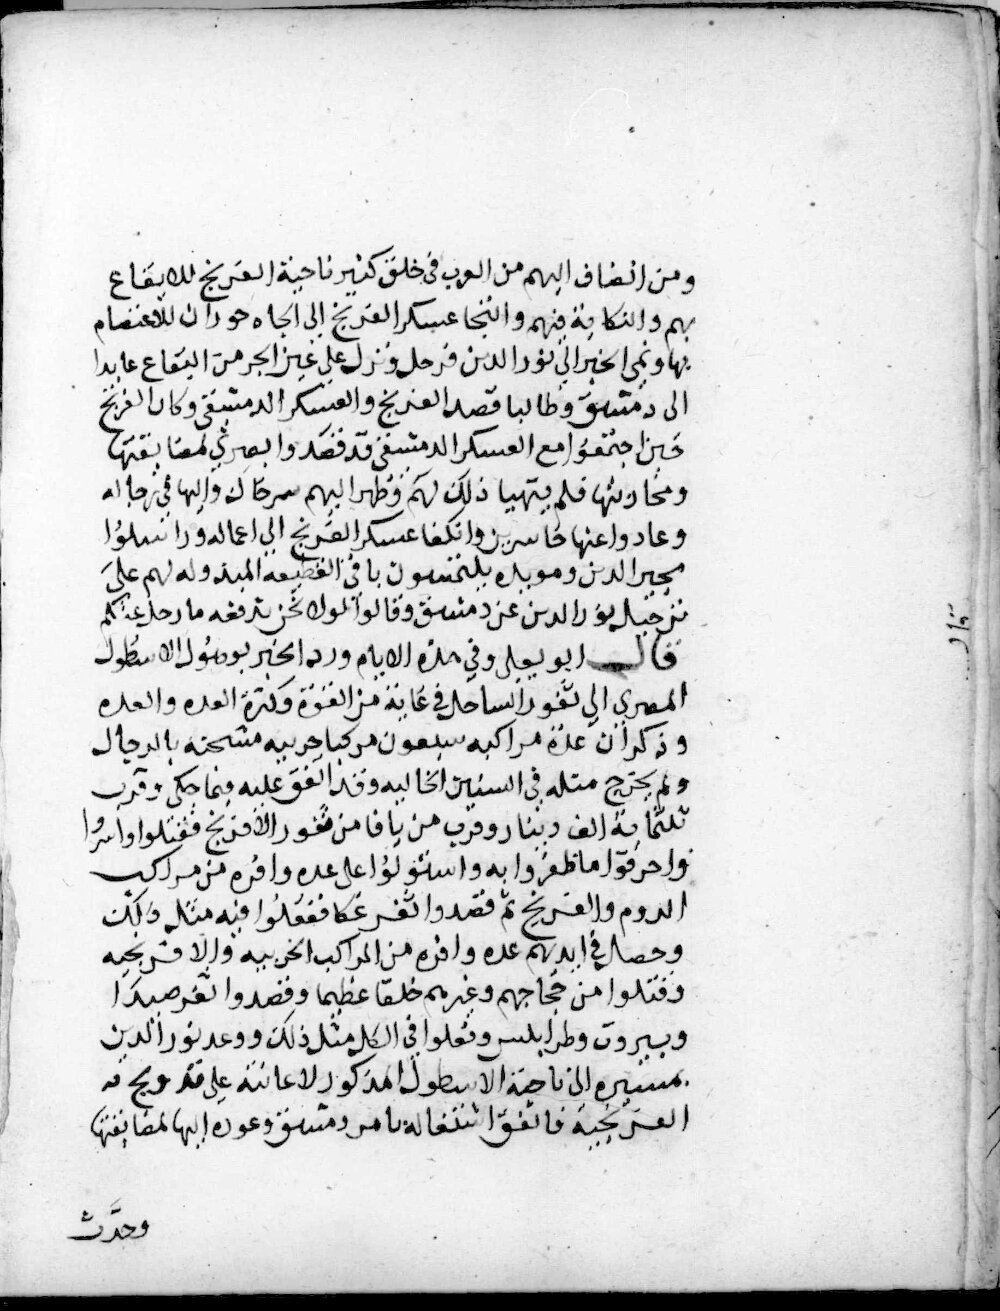 ومن انضاف اليهم من العرب في خلق كثير ناحية الفرنج للايقاع
بهم والنكاية فيهم والتجا عسكر الفرنج الى لجاه حوران للاعتصام
بها ونمى الخبر الى نور الدين فرحل ونزل على عين الجر من البقاع عايدا
الى دمشق وطالبا قصد الفرنج والعسكر الدمشقي وكان الفرنج
حين اجتمعوا مع العسكر الدمشقي قد قصدوا بصرى لمضايقتها
ومحاربتها فلم يتهيا ذلك لهم وظهر اليهم سرخاك واليها في رجاله
وعادوا عنها خاسرين وانكفا عسكر الفرنج الى اعماله وراسلوا
مجير الدين ومويده يلتمسون باقي القطيعه المبذوله لهم على
ترحيل نور الدين عن دمشق وقالوا لولا نحن ندفعه ما رحل عنكم
قال ابو يعلى وفي هذه الايام ورد الخبر بوصول الاسطول
المصري الى ثغور الساحل في غاية من القوة وكثرة العده والعده
وذكر ان عدة مراكبه سبعون مركبا حربيه مشحنه بالرجال
ولم يخرج مثله في السنين الخاليه وقد انفق عليه فيما حكى وقرب
ثلثماية الف دينار وقرب من يافا من ثغور الافرنج فقتلوا واسروا
واحرقوا ما ظفروا به واستولوا على عده وافره من مراكب
الروم والفرنج ثم قصدوا ثغر عكا ففعلوا فيه مثل ذلك
وحصل في ايديهم عده وافره من المراكب الحربيه والافرنجيه
وقتلوا من حجاجهم وغيرهم خلقا عظيما وقصدوا ثغر صيدا
وبيروت وطرابلس وفعلوا في الكل مثل ذلك ووعد نور الدين
بمسيره الى ناحية الاسطول المذكور لاعانته على تدويخ
الفرنجية فاتفق اشتغاله بامر دمشق وعوده اليها لمضايقتها
وحدث